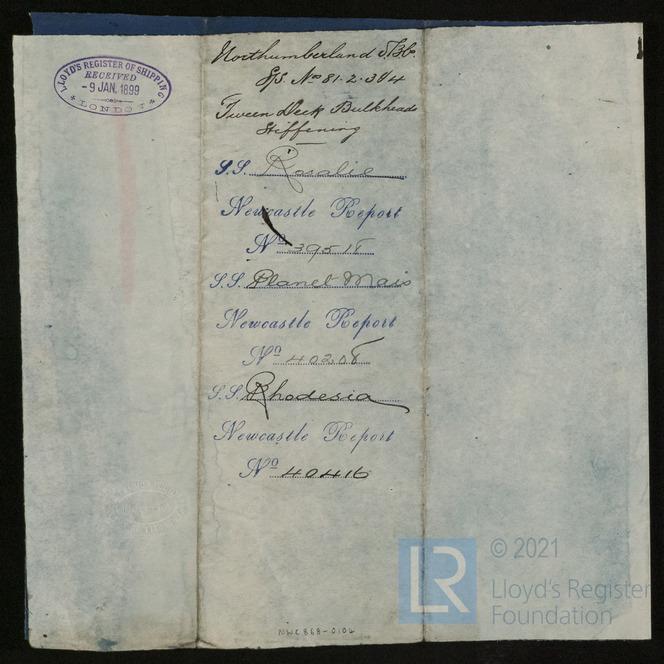 LLOYD'S REGISTER OF SHIPPING
RECEIVED
- 9 JAN. 1899
LONDON
Northumberland S.B.Co.
S/S. Nos 81.2.3 & 4
Tween Deck Bulkheads
Stiffening
S.S. Rosalie
Newcastle Report
No 39518
S.S. Planet Mars
Newcastle Report
No 40208
S.S. Rhodesia
Newcastle Report
No 40416
NWC 868-0106
LR
© 2021
Lloyd's Register
Foundation